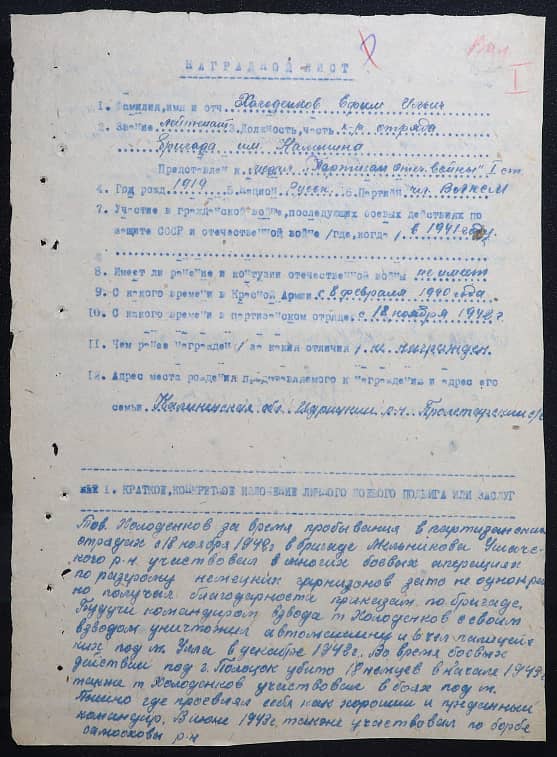 I
НАГРАДНОЙ ЛИСТ
1. Фамилия, имя и отч. Холоденков Ефим
2. Звание лейтенант 3. Должность, часть к-р отряда
Бригада им. Калинина
Представлен к: медали "Партизан отеч. войны" I ст.
4. Год рожд. 1919 5. Национ. Русск. 6. Партийн. чл. ВЛКСМ
7. Участие в гражданской войне, последующих боевых действиях по
защите СССР и отечественной войне /где, когда/ в 1941 году
8. Имеет ли ранение и контузии отечественной войны не имеет
9. С какого времени в Красной Армии с 8 февраля 1940 года
10. С какого времени в партизанском отряде с 18 ноября 1942 г.
11. Чем ранее награжден /за какия отличия/ не награжден.
12. Адрес место рождения представляемого к награждению и адрес его
семьи. Калининская обл. Идрицкий р-н. Пролетарский с/с
1. КРАТКОЕ, КОНКРЕТНОЕ ИЗЛОЖЕНИЕ ЛИЧНОГО БОЕВОГО ПОДВИГА ИЛИ ЗАСЛУГ
Тов. Холоденков за время пребывания в партизанских
отрядах с 18 ноября 1942г в бригаде Мельникова Ушачс-
кого р-н. участвовал в многих боевых операциях
по разгрому немецких гарнизонов за то не однократ
но получал благодарности приказам по бригаде.
Будучи командиром взвода т. Холоденков с своим
взводом уничтожил автомашину и 8 чел. полицейс-
ких под м. Улла в декабре 1942г. Во время боевых
действий под г. Полоцк убито 18 немцев в начале 1943г
также т. Холоденков участвовал в боях под м.
где проевлял себя как хороший и преданный
командир. В июне 1943г. также участвовал по борбе
р-н